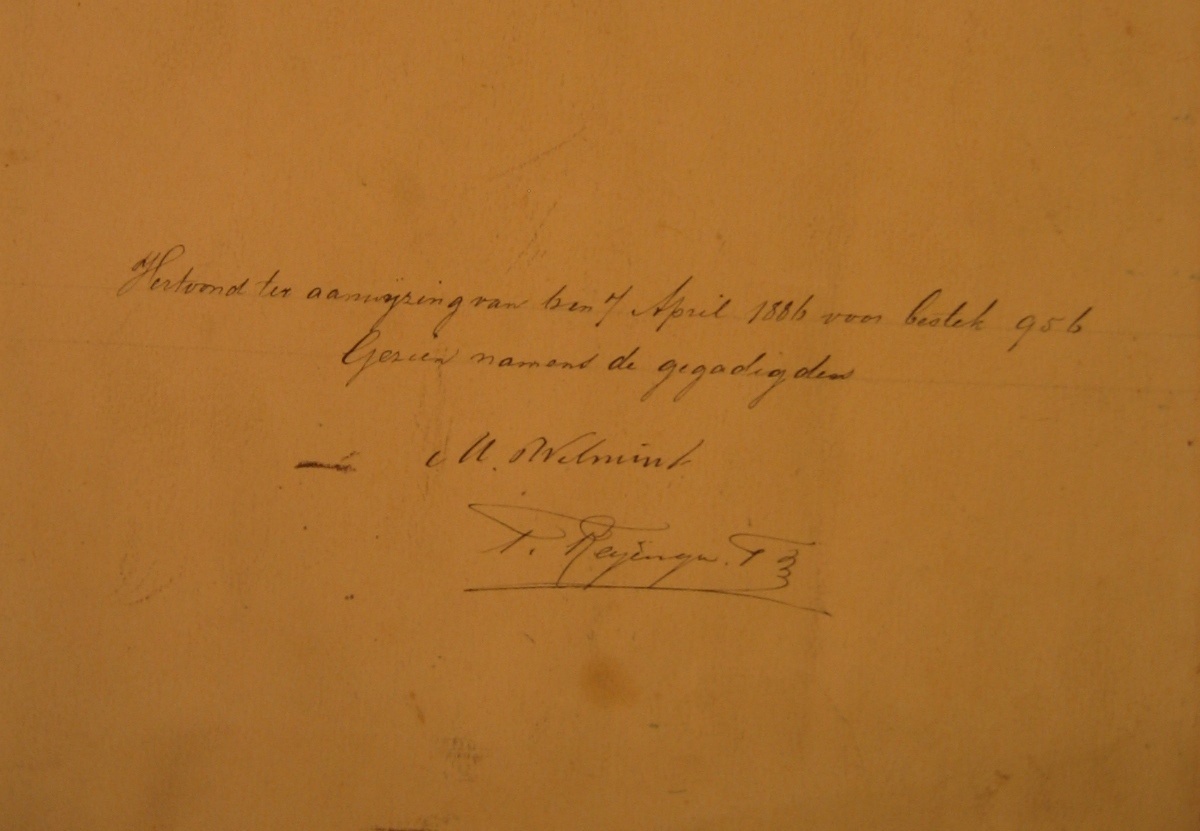 Vertoond ter aanwijzing van den 7 April 1886 voor bestek 956
Gezien namens de gegadigden
M. Welmint
P. Reyenga. Tz